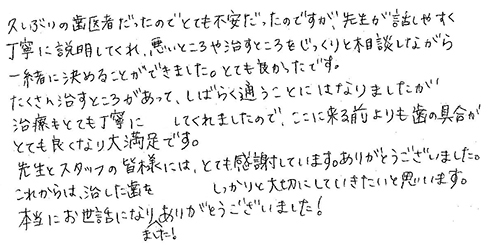 久しぶりの歯医者だったのでとても不安だったのですが、先生が話しやすく
丁寧に説明してくれ、悪いところや治すところをじっくりと相談しながら
一緒に決めることができました。とても良かったです。
たくさん治すところがあって、しばらく通うことにはなりましたが
治療もとても丁寧に してくれましたので、ここに来る前よりも歯の具合が
とても良くなり大満足です。
先生とスタッフの皆様には、とても感謝しています。ありがとうございました。
これからは、治した歯を しっかりと大切にしていきたいと思います。
本当にお世話になりありがとうございました!
ました!